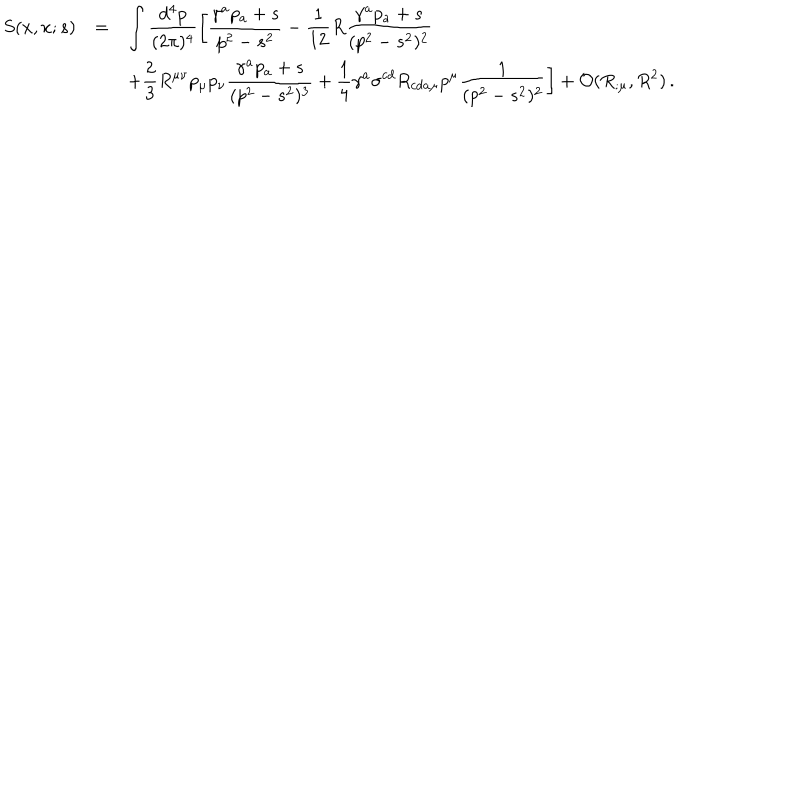 S(x, x; s) = ∫ \frac{d^4p}{(2π)^4} [ \frac{γ^a p_a + s}{p^2 − s^2} − \frac{1}{12} R \frac{γ^a p_a + s}{(p^2 − s^2)^2}
+ \frac{2}{3} R^{μν} p_μ p_ν \frac{γ^a p_a + s}{(p^2 − s^2)^3} + \frac{1}{4} γ^a σ^{cd} R_{cdaμ} p^μ \frac{1}{(p^2 − s^2)^2} ] + O(R_{;μ}, R^2) .